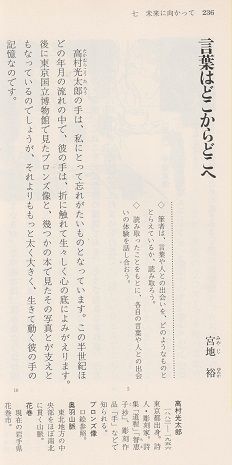 七　未来に向かって　236
言葉はどこからどこへ
宮地　裕
みやじ　ゆたか
◇ 筆者は、言葉や人との出会いを、どのようなものと
とらえているか、読み取ろう。
◇ 読み取ったことをもとに、各自の言葉や人との出会
いの体験を話し合おう。
たかむらこうたろう
高村光太郎の手は、私にとって忘れがたいものとなっています。この半世紀ほ
どの年月の流れの中で、彼の手は、折に触れて生々しく心の底によみがえります。
後に東京国立博物館で見たブロンズ像と、幾つかの本で見たその写真とが支えと
もなっているのでしょうが、それよりももっと太く大きく、生きて動く彼の手の
記憶なのです。
5
10
高村光太郎
一八八三―一九五六
東京都出身。詩
人・彫刻家。詩
集「道程」「智恵
子抄」、彫刻作
品「手」などで
知られる。
ブロンズ像
口絵参照。
奥羽山脈
東北地方の中
央部をほぼ南北
に貫く山脈。
花巻
現在の岩手県
花巻市。